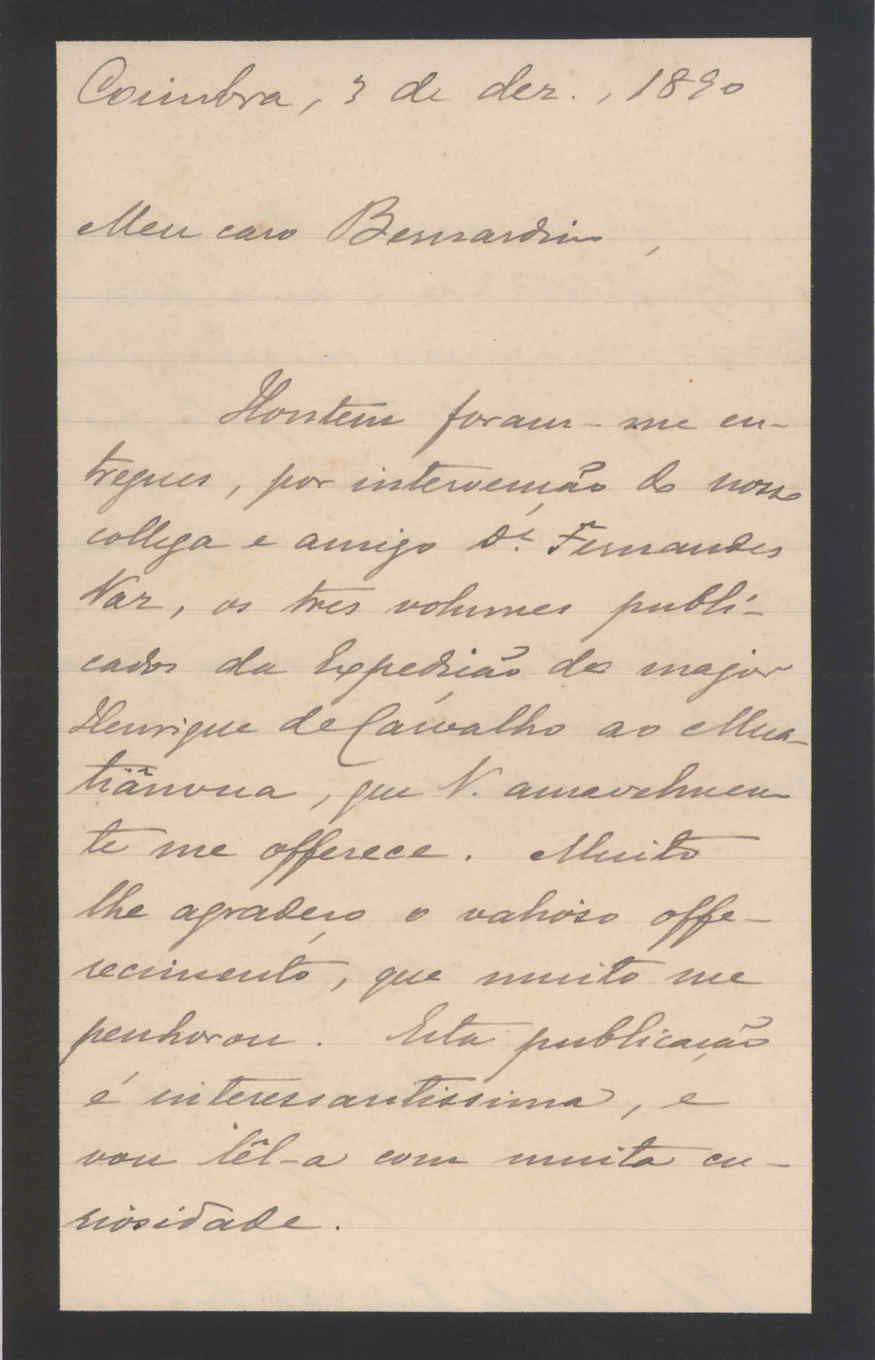 Coimbra, 3 de dez., 1890
Meu caro Bernardino,
Hontem foram-me en-
tregues, por intervenção do nosso
collega e amigo Dr. Fernandes
Vaz, os tres volumes publi-
cados da Expedição do major
Henrique de Carvalho ao Mua-
tiânvua, que V. amavelmen
te me offerece. Muito
lhe agradeço o valioso offe-
recimento, que muito me
penhorou. Esta publicação
é interessantissima, e
vou lêl-a com muita cu-
riosidade.